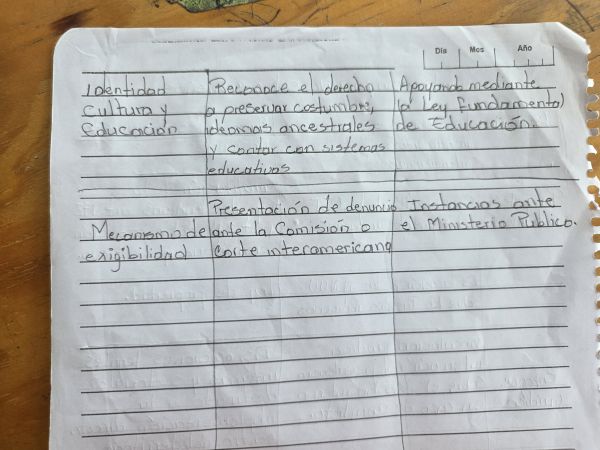 Día Mes Año
Identidad Reconoce el derecho Apoyando mediante
Cultura y a preservar costumbre, la Ley Fundamental
Educación ideomas ancestrales de Educación.
y contar con sistemas
educativos
Presentación de denuncia Instancias ante
Mecanismo de ante la Comisión o el Ministerio Público.
exigibilidad Corte interamericana